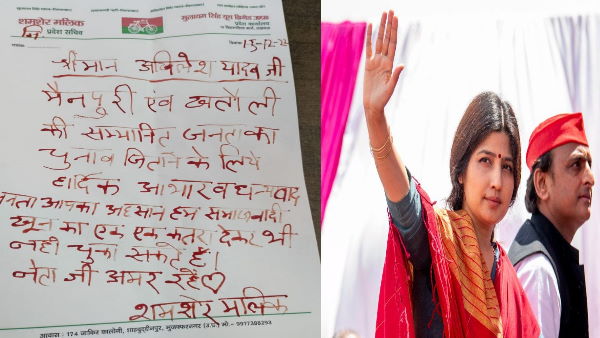 शमशेर मलिक
प्रदेश सचिव
मुलायम सिंह यूथ ब्रिगेड उ०प्र०
प्रदेश कार्यालय
दिनांक 13-12-22
श्रीमान अखिलेश यादव जी
मैनपुरी एंव खतौली
की सम्मानित जनता का
चुनाव जिताने के लिये
हार्दिक आभार व धन्यवाद
जनता आपका अहसान हम समाजवादी
खून का एक एक कतरा देकर भी
नही चुका सकते हैं।
नेता जी अमर रहें
शमशेर मलिक
आवास : 174 जाकिर कालोनी, शाहबुद्दीनपुर, मुजफ्फरनगर (उ.प्र.) मो.-